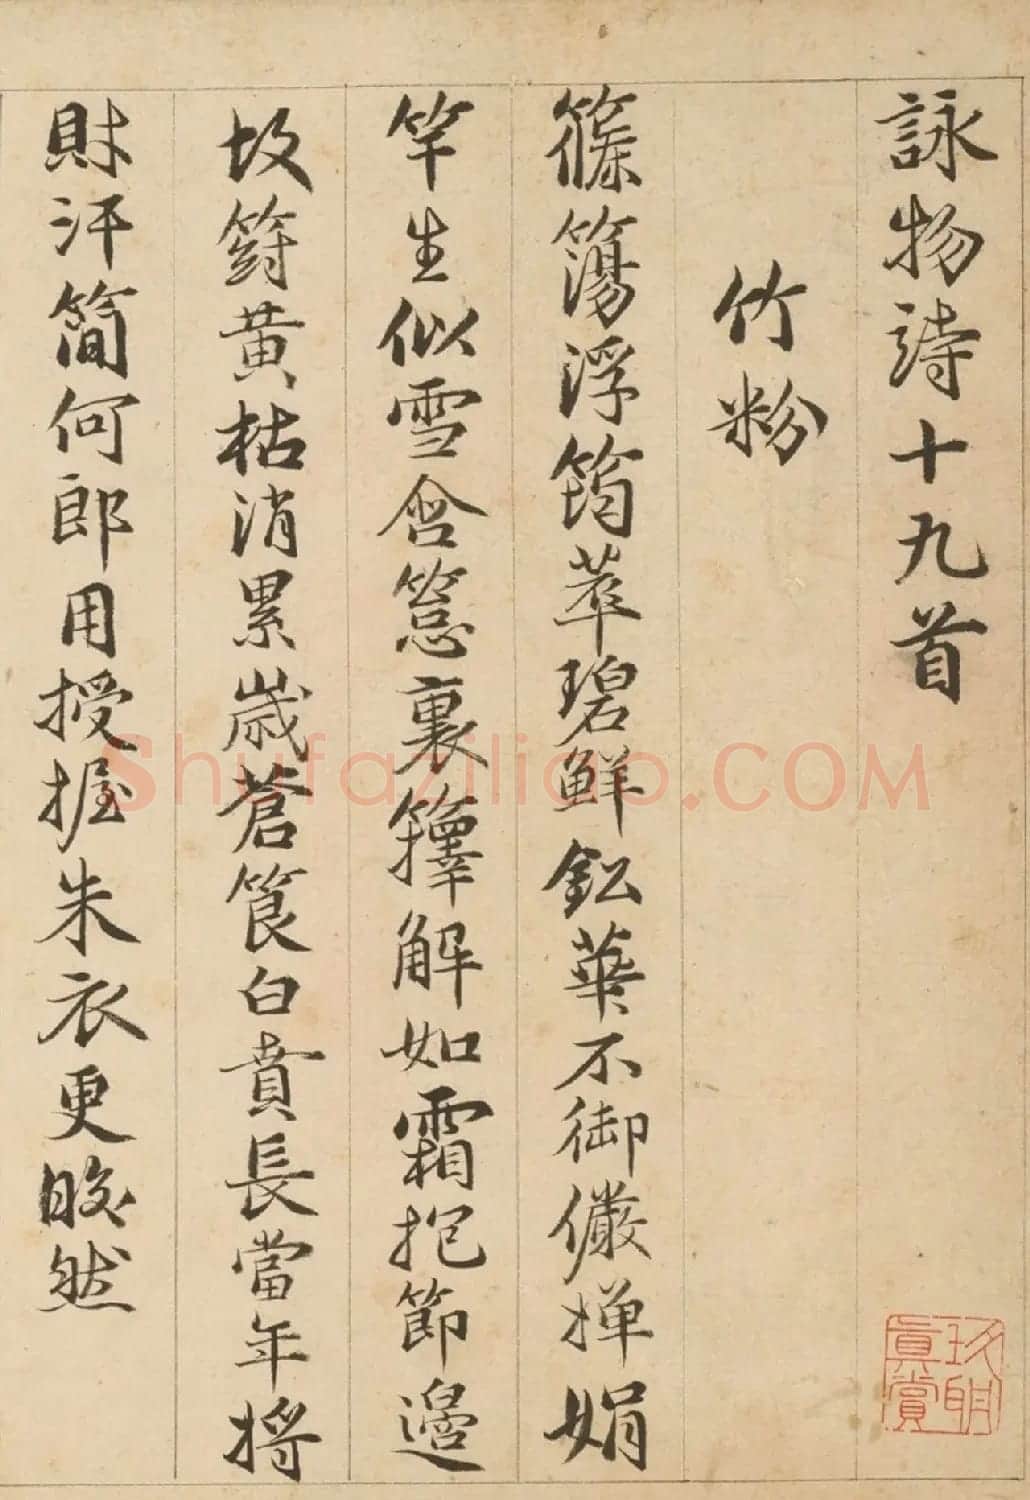 詠物詩十九首
竹粉
篠簜浮筠萃碧鮮鈆華不御儼嬋娟
竿生似雪含䈠裏籜解如霜抱節邉
坆篈黄枯消累歳蒼筤白賁長當年将
財汗簡何郎用授握朱衣更晈然
玖聃真賞
Shufaziliao.COM